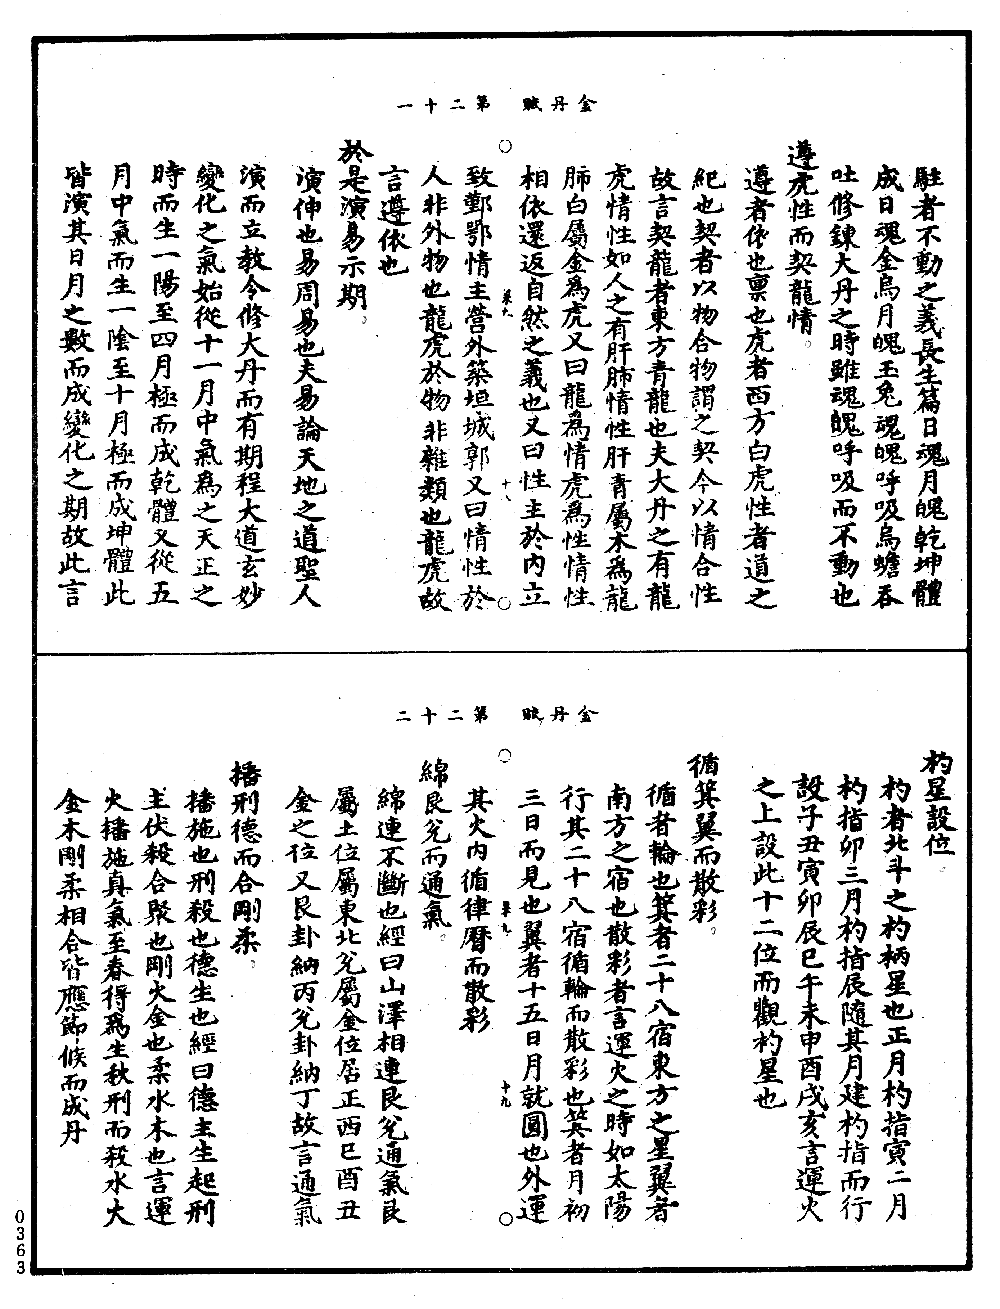 金丹賦　第二十一
駐者不動之義長生篇曰魂月魄乾坤體
成日魂金烏月魄玉兔魂魄呼吸烏蟾吞
吐修鍊大丹之時雖魂魄呼吸而不動也
遵虎性而契龍情。
遵者依也稟也虎者西方白虎性者道之
紀也契者以物合物謂之契今以情合性
故言契龍者東方青龍也夫大丹之有龍
虎情性如人之有肝肺情性肝青屬木為龍
肺白屬金為虎又曰龍為情虎為性情性
相依還返自然之義也又曰性主於內立
○
十八
○
致鄞鄂情主營外築垣城郭又曰情性於
人非外物也龍虎於物非雜類也龍虎故
言遵依也
於是演易示期。
演伸也易周易也夫易論天地之道聖人
演而立教今修大丹而有期程大道玄妙
變化之氣始從十一月中氣為之天正之
時而生一陽至四月極而成乾體又從五
月中氣而生一陰至十月極而成坤體此
皆演其日月之數而成變化之期故此言
金丹賦　第二十二
杓星設位
杓者北斗之杓柄星也正月杓指寅二月
杓指卯三月杓指辰隨其月建杓指而行
設子丑寅卯辰巳午未申酉戌亥言運火
之上設此十二位而觀杓星也
循箕翼而散彩。
循者輪也箕者二十八宿東方之星翼者
南方之宿也散彩者言運火之時如太陽
行其二十八宿循輪而散彩也箕者月初
三日而見也翼者十五日月就圓也外運
○
十九
○
其火內循律曆而散彩
綿艮兌而通氣。
綿連不斷也經曰山澤相連艮兌通氣艮
屬土位屬東北兌屬金位居正西巳酉丑
金之位又艮卦納丙兌卦納丁故言通氣
播刑德而合剛柔。
播施也刑殺也德生也經曰德主生起刑
主伏殺合聚也剛火金也柔水木也言運
火播施真氣至春得為生秋刑而殺水火
金木剛柔相合皆應節候而成丹
0363